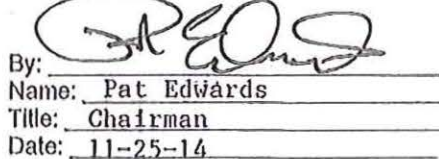 By:
Name: Pat Edwards
Title: Chairman
Date: 11-25-14